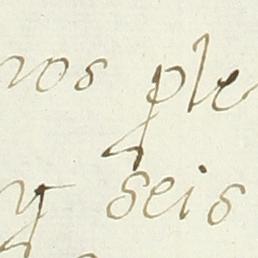 ros ple
y seis